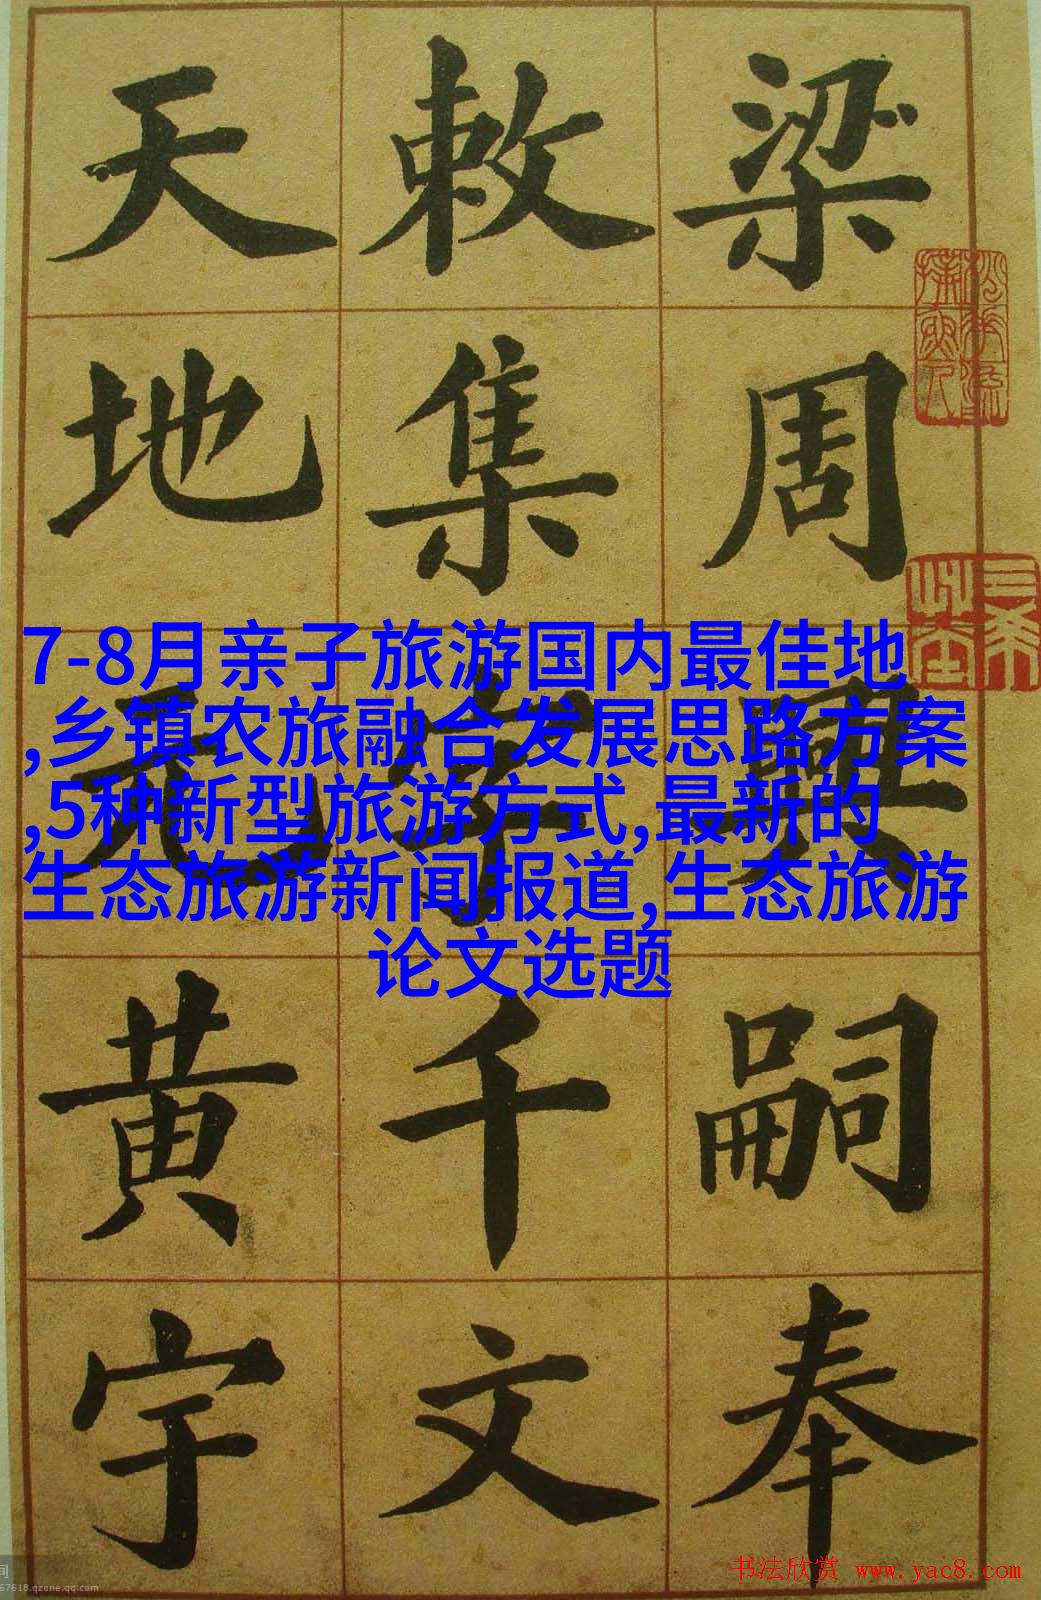 梁周興嗣奉
敕集字千文
天地元黄宇
7-8月亲子旅游国内最佳地
,乡镇农旅融合发展思路方案
,5种新型旅游方式,最新的
生态旅游新闻报道,生态旅游
论文选题
书法欣赏 www.yac8.com
间
67618.qzone.qq.com